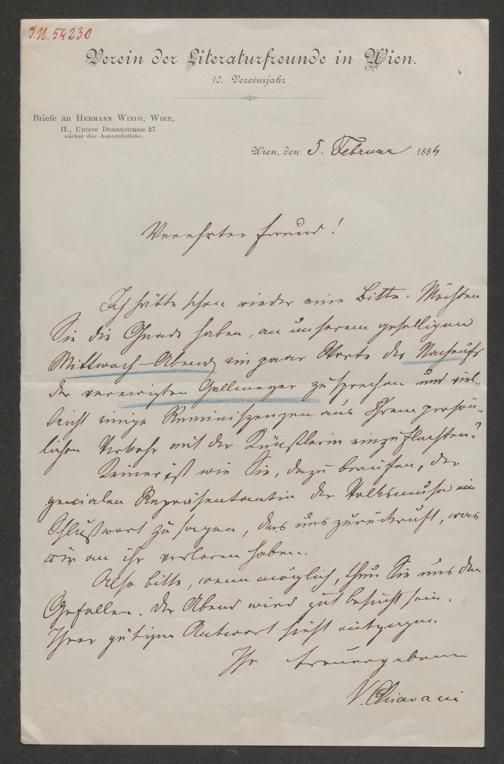 I.N. 54230
Verein der Literaturfreunde in Wien.
10. Vereinsjahr
Briefe an HERMANN WINDS, WIEN,
II., Untere Donaustrasse 27
nächst der Aspernbrücke.
Wien, den 5. Februar 1884
Verehrter Freund!
Ich hätte schon wieder eine Bitte. Möchten
Sie die Gnade haben, an unserem geselligen
Mittwoch-Abend ein paar Worte des Nachrufs
der verewigten Gallmeyer zu sprechen und viel-
leicht einige Reminiszenzen aus Ihrem persön-
lichen Verkehr mit der Künstlerin einzuflechten?
Keiner ist wie Sie, dazu berufen, der
genialen Repräsentantin der Volksmuse ein
Schlußwort zu sagen, das uns zurückruft, was
wir an ihr verloren haben.
Also bitte, wenn möglich, thun Sie uns den
Gefallen. Der Abend wird gut besucht sein.
Ihrer gütigen Antwort sieht entgegen
Ihr treuergebener
V. Chiavacci